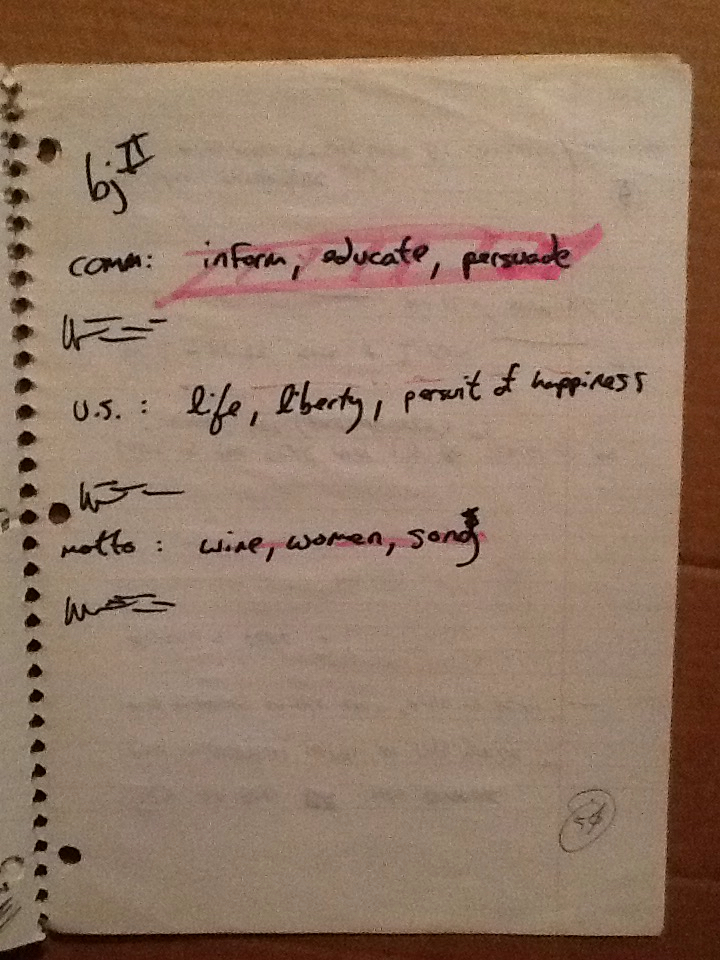 bj II
comm: inform, educate, persuade
U.S. : life, liberty, persuit of happiness
motto : wine, women, song